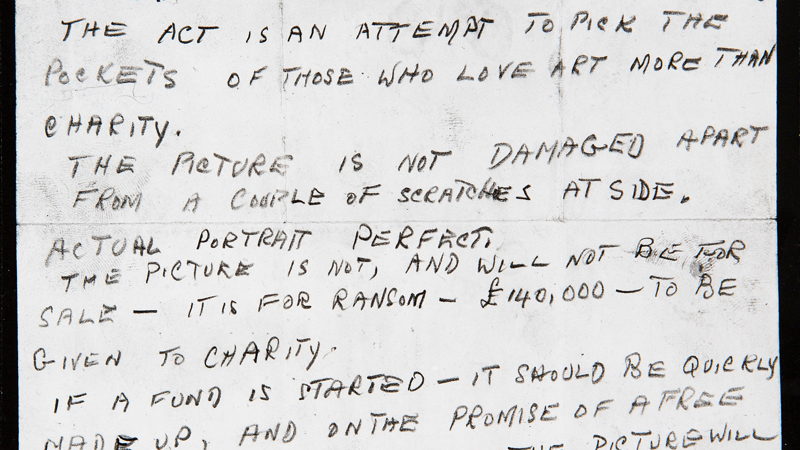 THE ACT IS AN ATTEMPT TO PICK THE
POCKETS OF THOSE WHO LOVE ART MORE THAN
CHARITY.
THE PICTURE IS NOT DAMAGED APART
FROM A COUPLE OF SCRATCHES AT SIDE.
ACTUAL PORTRAIT PERFECT.
THE PICTURE IS NOT, AND WILL NOT BE FOR
SALE — IT IS FOR RANSOM — £140,000 — TO BE
GIVEN TO CHARITY.
IF A FUND IS STARTED — IT SHOULD BE QUICKLY
MADE UP, AND ON THE PROMISE OF A FREE
THE PICTURE WILL